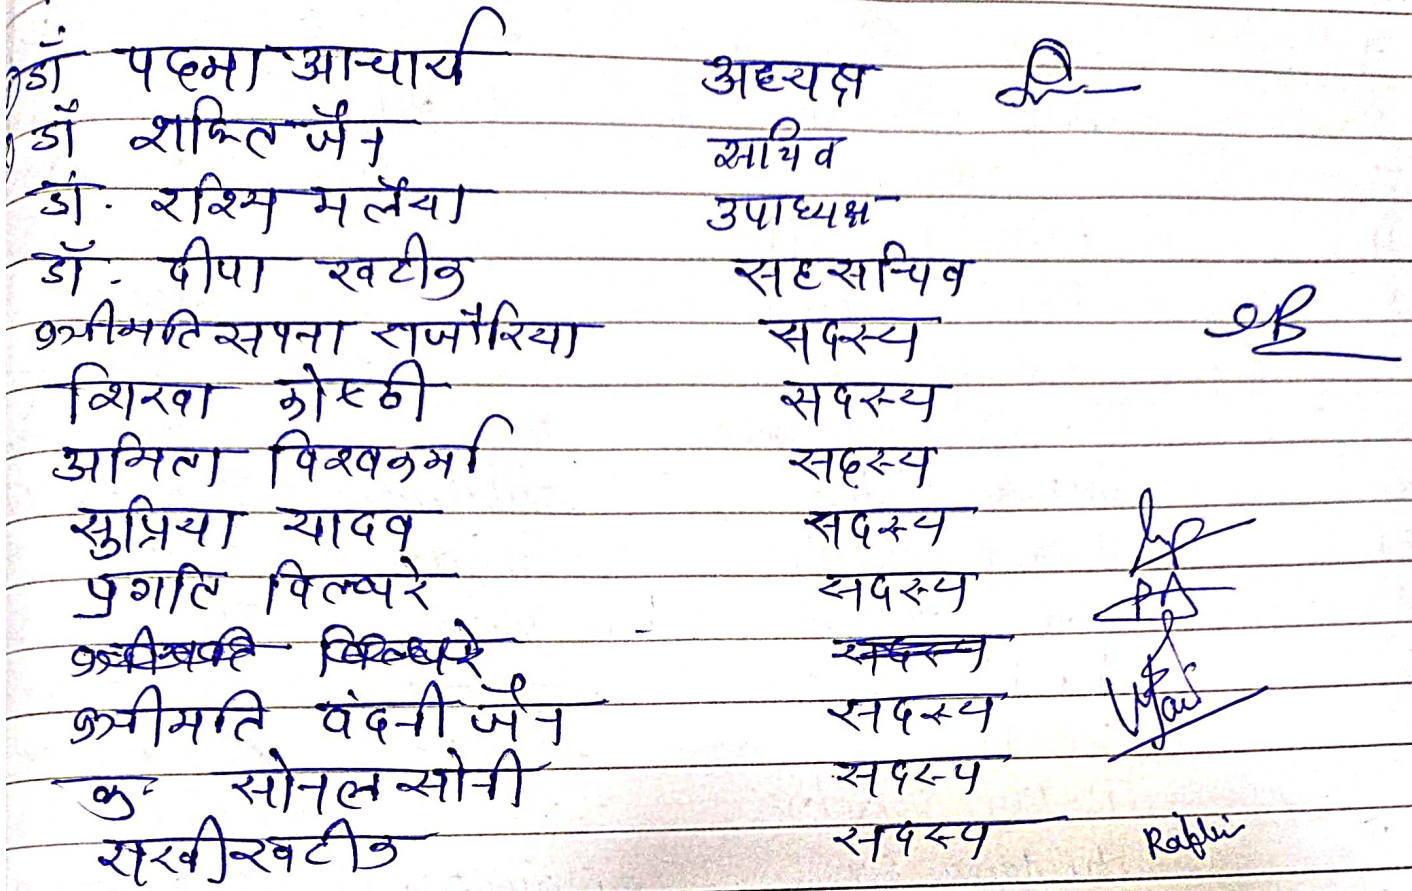 डॉ पदमा आचार्य अध्यक्ष
डॉ शक्ति जैन सचिव
डॉ. रश्मि मलैया उपाध्यक्ष
डॉ. दीपा खटीक सहसचिव
श्रीमति सपना राजौरिया सदस्य
शिखा कोष्ठी सदस्य
अमिता विश्वकर्मा सदस्य
सुप्रिया यादव सदस्य
प्रगति पिल्परे सदस्य
श्रीमति वंदनी जैन सदस्य
कु. सोनल सोनी सदस्य
सखी खटीक सदस्य